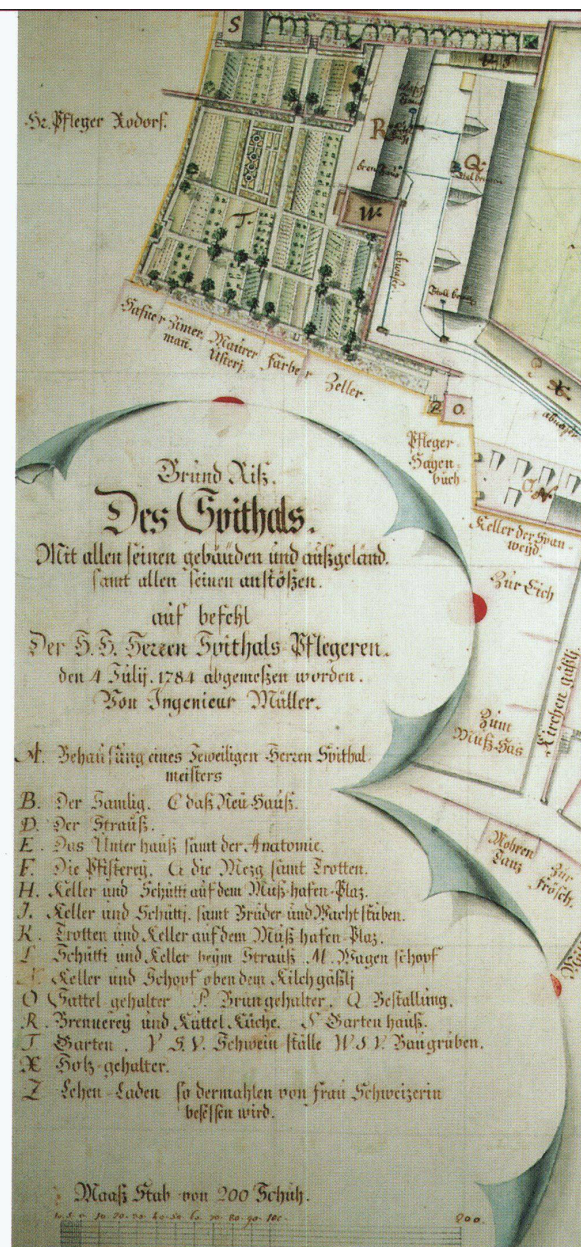 S
Hr. Pfleger Rodorf.
R
Q
W
T.
Hafner Zimer Maurer Farber Zeller.
man. Usterj.
P. O.
X
Pfleger
Hagen
buch
N.
Keller der Span
weÿd.
Zur Eich
Zum
Muß-Has
Kirchen gäßlj
Mohren
Tanz
Zur
Frösch.
Grund Riß.
Des Spithals.
Mit allen seinen gebäuden und außgeländ.
samt allen seinen anstößen.
auf befehl
Der H. H. Herren Spithals-Pflegeren.
den 4 Julij. 1784 abgemeßen worden.
Von Ingenieur Müller.
A. Behausung eines Jeweiligen Herren Spithal-
meisters
B. Der Samlig. C daß Neu-Hauß.
D. Der Strauß.
E. Das Unter hauß samt der Anatomie.
F. Die Pfisterey. G die Mezg samt Trotten.
H. Keller und Schütti auf dem Muß-hafen-Plaz.
J. Keller und Schüttj. samt Brüder und Wacht stuben.
K. Trotten und Keller auf dem Muß hafen-Plaz.
L Schütti und Keller beÿm Strauß. M. Wagen schopf
N Keller und Schopf oben dem Kilchgäßlj
O Sattel gehalter P. Brun gehalter. Q Bestallung.
R. Brennereÿ und Kuttel Küche. S Garten hauß.
T Garten. V S. V. Schwein ställe W S. V. Baugruben.
X Holz-gehalter.
Z Lehen-Laden so dermahlen von frau Schweizerin
beseßen wird.
Maaß Stab von 200 Schuh.
10. 20. 30. 40. 50. 60. 70. 80. 90. 100. 200.